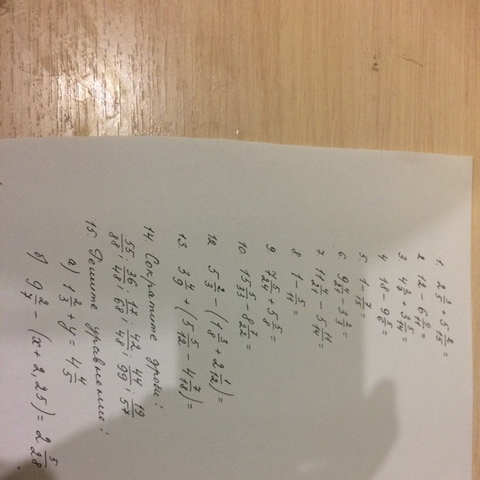 1. 2 2/5 + 5 2/15 =
2 12 - 6 2/11 =
3 4 2/7 + 3 5/14 =
4 18 - 9 5/6 =
5. 1 - 7/15 =
6 9 2/21 - 3 2/3 =
7 11 4/21 - 5 11/14 =
8 1 - 5/11 =
9 7 5/24 + 5 5/8 =
10 15 5/33 - 8 7/22 =
12 5 2/3 - (1 3/8 + 2 1/12) =
13 3 4/9 + (5 5/12 - 4 7/18) =
14. Сократите дроби:
55/88; 36/48; 17/68; 42/48; 44/99; 19/57
15. Решите уравнение:
а) 1 2/3 + y = 4 4/5
б) 9 2/7 - (x + 2,25) = 2 5/28